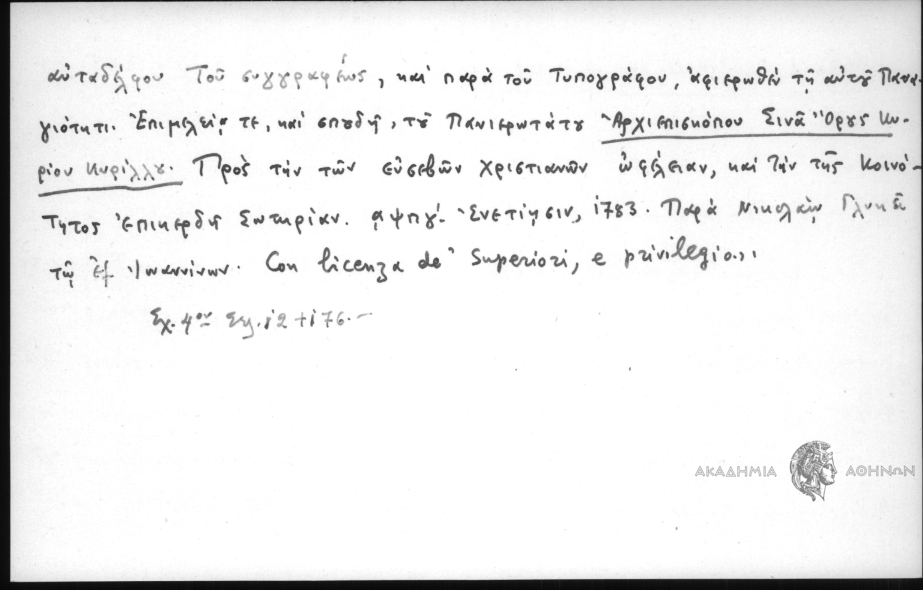 αὐταδέλφου τοῦ συγγραφέως, καὶ παρὰ τοῦ Τυπογράφου, ἀφιερωθὲν τῇ αὐτοῦ Πανα-
γιότητι. Ἐπιμελείᾳ τε, καὶ σπουδῇ, τοῦ Πανιερωτάτου Ἀρχιεπισκόπου Σινᾶ Ὄρους Κυ-
ρίου Κυρίλλου. Πρὸς τὴν τῶν εὐσεβῶν χριστιανῶν ὠφέλειαν, καὶ τὴν τῆς Κοινό-
τητος ἐπικερδῆ Σωτηρίαν. ͵αψπγʹ. Ἐνετίῃσιν, 1783. Παρὰ Νικολάῳ Γλυκεῖ
τῷ ἐξ Ἰωαννίνων. Con licenza de' Superiori, e privilegio.
Σχ. 4ον Σελ. 12 + 176.—
ΑΚΑΔΗΜΙΑ ΑΘΗΝΩΝ